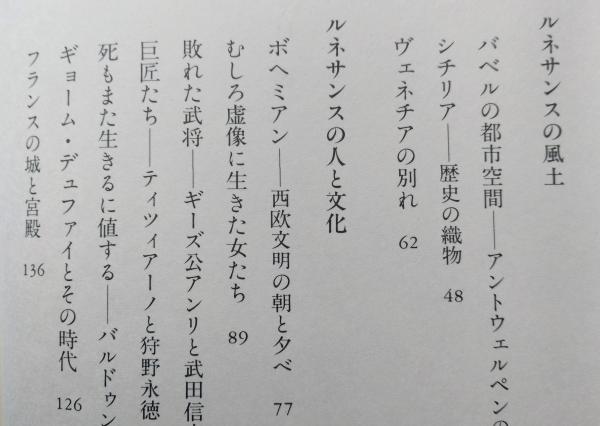 ルネサンスの風土
バベルの都市空間——アントウェルペンの
シチリア——歴史の織物 48
ヴェネチアの別れ 62
ルネサンスの人と文化
ボヘミアン——西欧文明の朝と夕べ 77
むしろ虚像に生きた女たち 89
敗れた武将——ギーズ公アンリと武田信
巨匠たち——ティツィアーノと狩野永徳
死もまた生きるに値する——バルドゥン
ギョーム・デュファイとその時代 126
フランスの城と宮殿 136